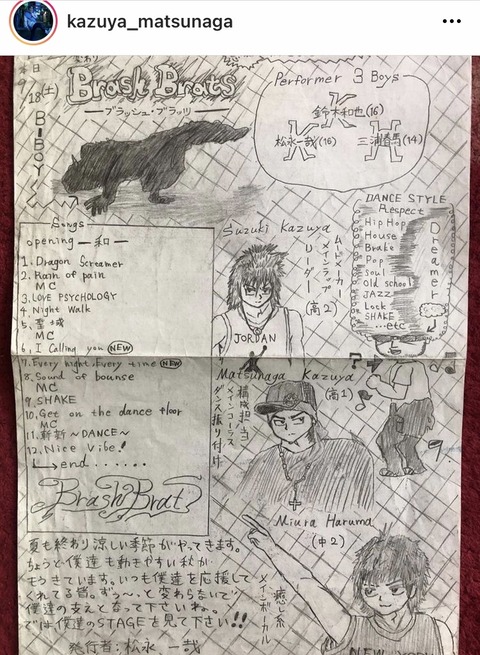 kazuya_matsunaga
本日
9/18(土)
Brash Brats
ーブラッシュ・ブラッツー
B-BOY
Performer 3 Boys
鈴木和也(16)
松永一哉(16)
三浦春馬(14)
DANCE STYLE
Respect
Hip Hop
House
Brake
Pop
Soul
Old school
JAZZ
Lock
SHAKE
...etc
Dreamer
Songs
opening ー和ー
1. Dragon Screamer
2. Rain of pain
MC
3. LOVE PSYCHOLOGY
4. Night Walk
5.
MC
6. I Calling you NEW
7. Every night, Every time NEW
8. Sound of bounse
MC
9. SHAKE
10. Get on the dance floor
MC
11. 斬新～DANCE～
12. Nice Vibe!
end......
Brash Brat
Suzuki Kazuya
ムードメーカー
メインラップ
リーダー
(高2)
JORDAN
Matsunaga Kazuya
(高1)
構成担当
メインコーラス
ダンス振り付け
Miura Haruma
(中2)
癒し系
メインボーカル
NEW YORK
夏も終わり涼しい季節がやってきます。
ちょうど僕達も動きやすい秋が
もうきています。いつも僕達を応援して
くれてる皆。ずぅ～っと変わらないで
僕達の支えとなって下さいね。
では僕達のSTAGEを見て下さい!!
発行者:松永一哉